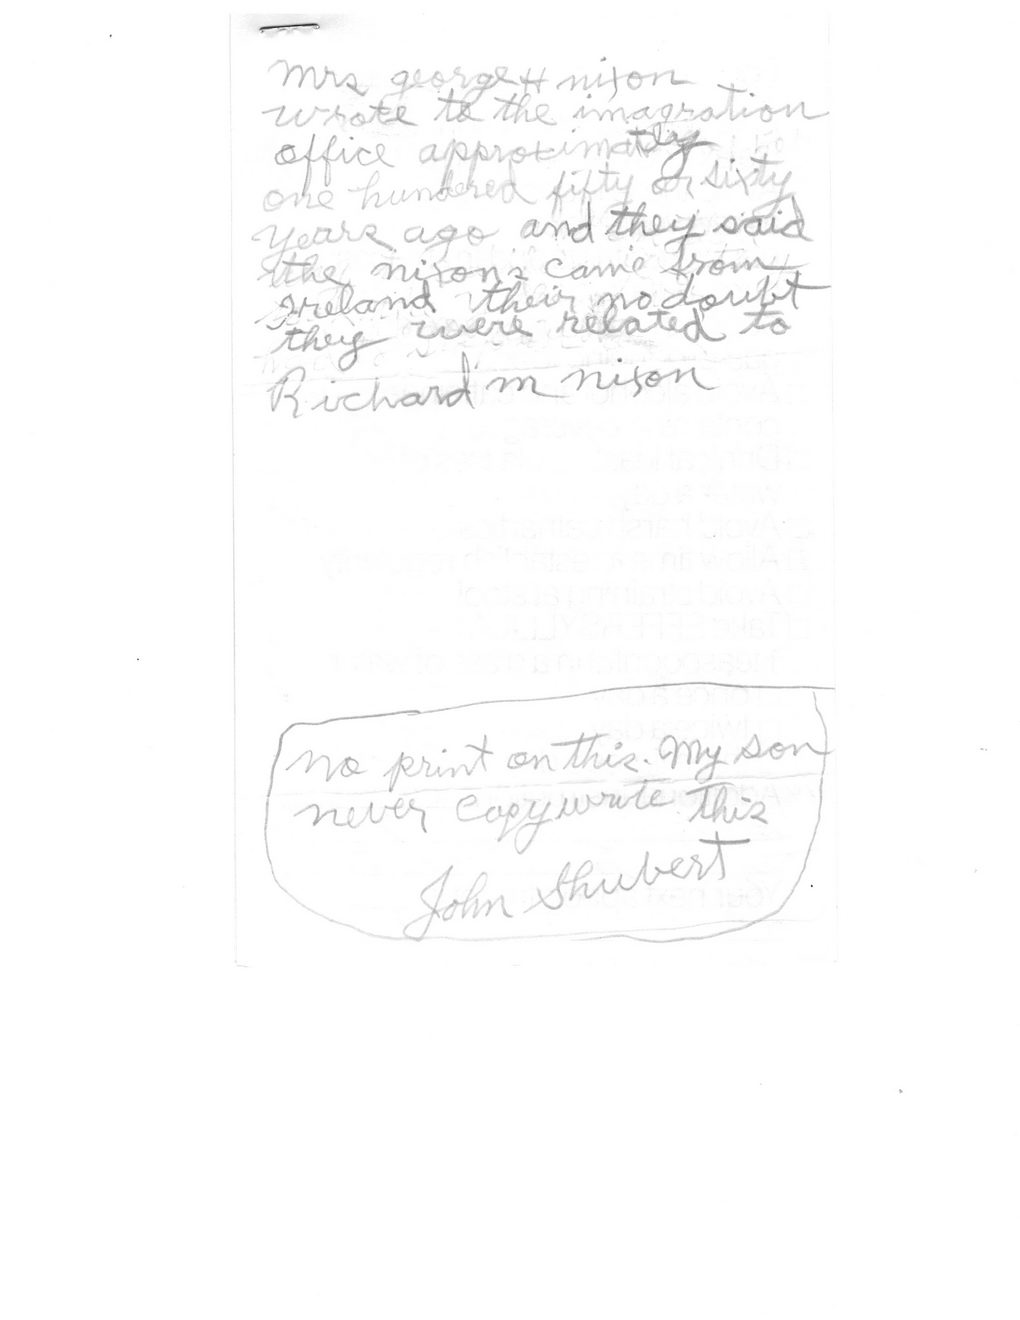 Mrs george H nixon
wrote to the imagration
office approximatly
one hundered fifty or sixty
years ago and they said
the nixons came from
Ireland their no doubt
they were related to
Richard m nixon
no print on this. My son
never copywrite this
John Shubert